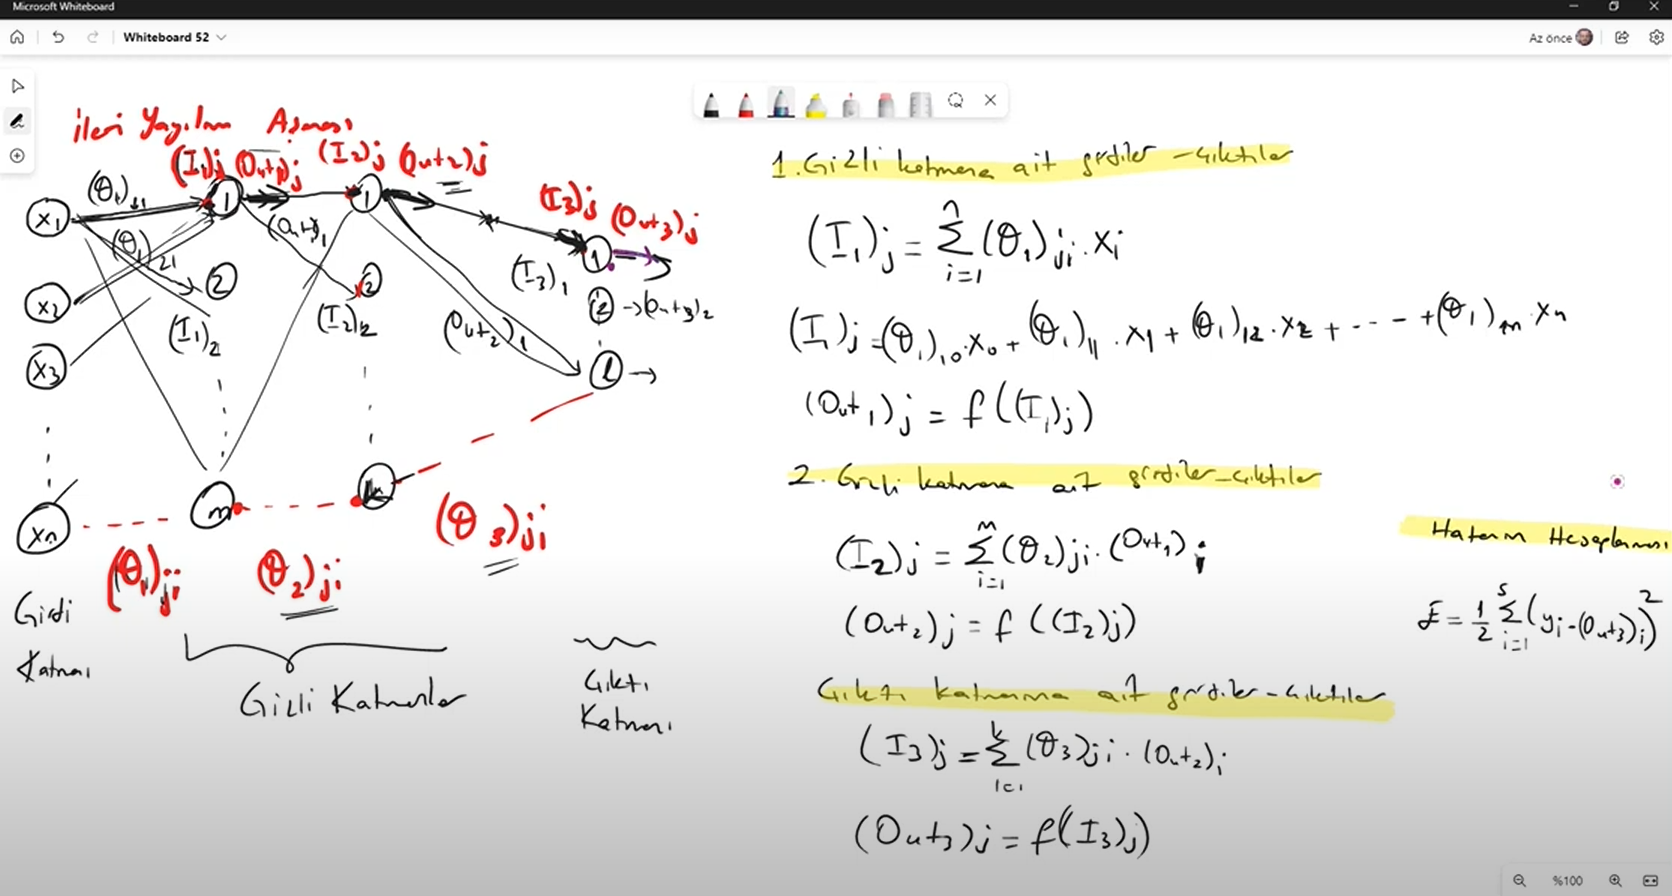 Microsoft Whiteboard
Whiteboard 52
Az önce
İleri Yayılım Aşaması
(I₁)j (Out₁)j (I₂)j (Out₂)j
(I₃)j (Out₃)j
x₁ (θ₁)₁₁ 1 1
(θ₁)₂₁ (Out₁)₁ 1
x₂ 2 2 (I₃)₁
(I₁)₂ (I₂)₂ (Out₂)₁ 2 → (Out₃)₂
x₃ l →
xn m k
(θ₁)ji (θ₂)ji (θ₃)ji
Girdi
Katmanı
Gizli Katmanlar
Çıktı
Katmanı
1. Gizli katmana ait girdiler - çıktılar
(I₁)j = Σ i=1 n (θ₁)ji . xi
(I₁)j = (θ₁)₁₀ . x₀ + (θ₁)₁₁ . x₁ + (θ₁)₁₂ . x₂ + ---- + (θ₁)₁n . xn
(Out₁)j = f((I₁)j)
2. Gizli katmana ait girdiler - çıktılar
(I₂)j = Σ i=1 m (θ₂)ji . (Out₁)i
(Out₂)j = f((I₂)j)
Çıktı katmanına ait girdiler - çıktılar
(I₃)j = Σ i=1 k (θ₃)ji . (Out₂)i
(Out₃)j = f(I₃)j)
Hatanın Hesaplanması
E = 1/2 Σ i=1 s (yi - (Out₃)i)²
%100